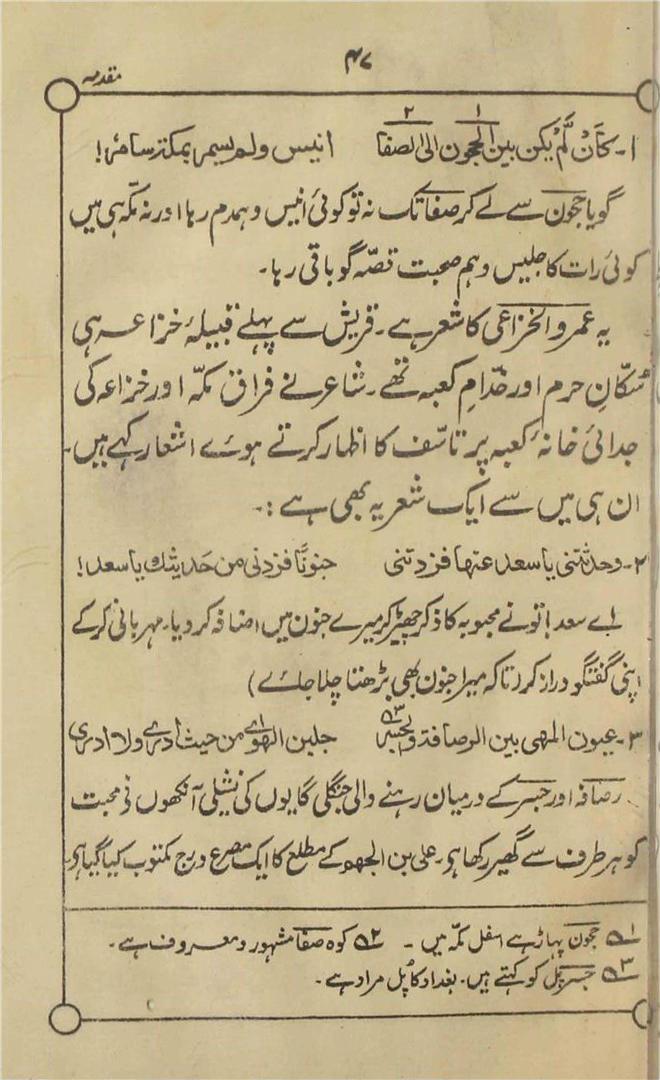 ۴۷
مقدمہ
۱ ۲
۱۔ کَاَنْ لَّمْ یکن بین الحجون الی الصفا انیس ولم یسمر بمکۃ سامرُ!
گویا حجون سے لے کر صفا تک نہ تو کوئی انیس و ہمدم رہا اور نہ مکّہ ہی میں
کوئی رات کا جلیس و ہم صحبت قصّہ گو باقی رہا۔
یہ عمرو الخزاعی کا شعر ہے۔ قریش سے پہلے قبیلۂ خزاعہ ہی
سُکّانِ حرم اور خدّامِ کعبہ تھے۔ شاعر نے فراق مکّہ اور خزاعہ کی
جدائی خانۂ کعبہ پر تاسّف کا اظہار کرتے ہوئے اشعار کہے ہیں۔
ان ہی میں سے ایک شعر یہ بھی ہے :۔
۲۔ وحدثتنی یا سعد عنہا فزدتنی جنونًا فزدنی من حَدیثك یا سعد!
اے سعد! تو نے محبوبہ کا ذکر چھیڑ کر میرے جنون میں اضافہ کر دیا۔ مہربانی کرکے
اپنی گفتگو دراز کر (تاکہ میرا جنون بھی بڑھتا چلا جائے)
۳۔ عیون المھی بین الرصافۃ والجسر ۵۳ جلبن الھویٰ من حیث ادری ولا ادری
رصافہ اور جسر کے درمیان رہنے والی جنگلی گایوں کی نشیلی آنکھوں نے محبت
کو ہر طرف سے گھیر رکھا ہو۔ علی بن الجھم کے مطلع کا ایک مصرع درج مکتوب کیا گیا ہو۔
۵۱ حجون پہاڑ ہے اسفل مکّہ میں ۔ ۵۲ کوہ صفا مشہور و معروف ہے۔
۵۳ جسر پُل کو کہتے ہیں۔ بغداد کا پُل مراد ہے۔